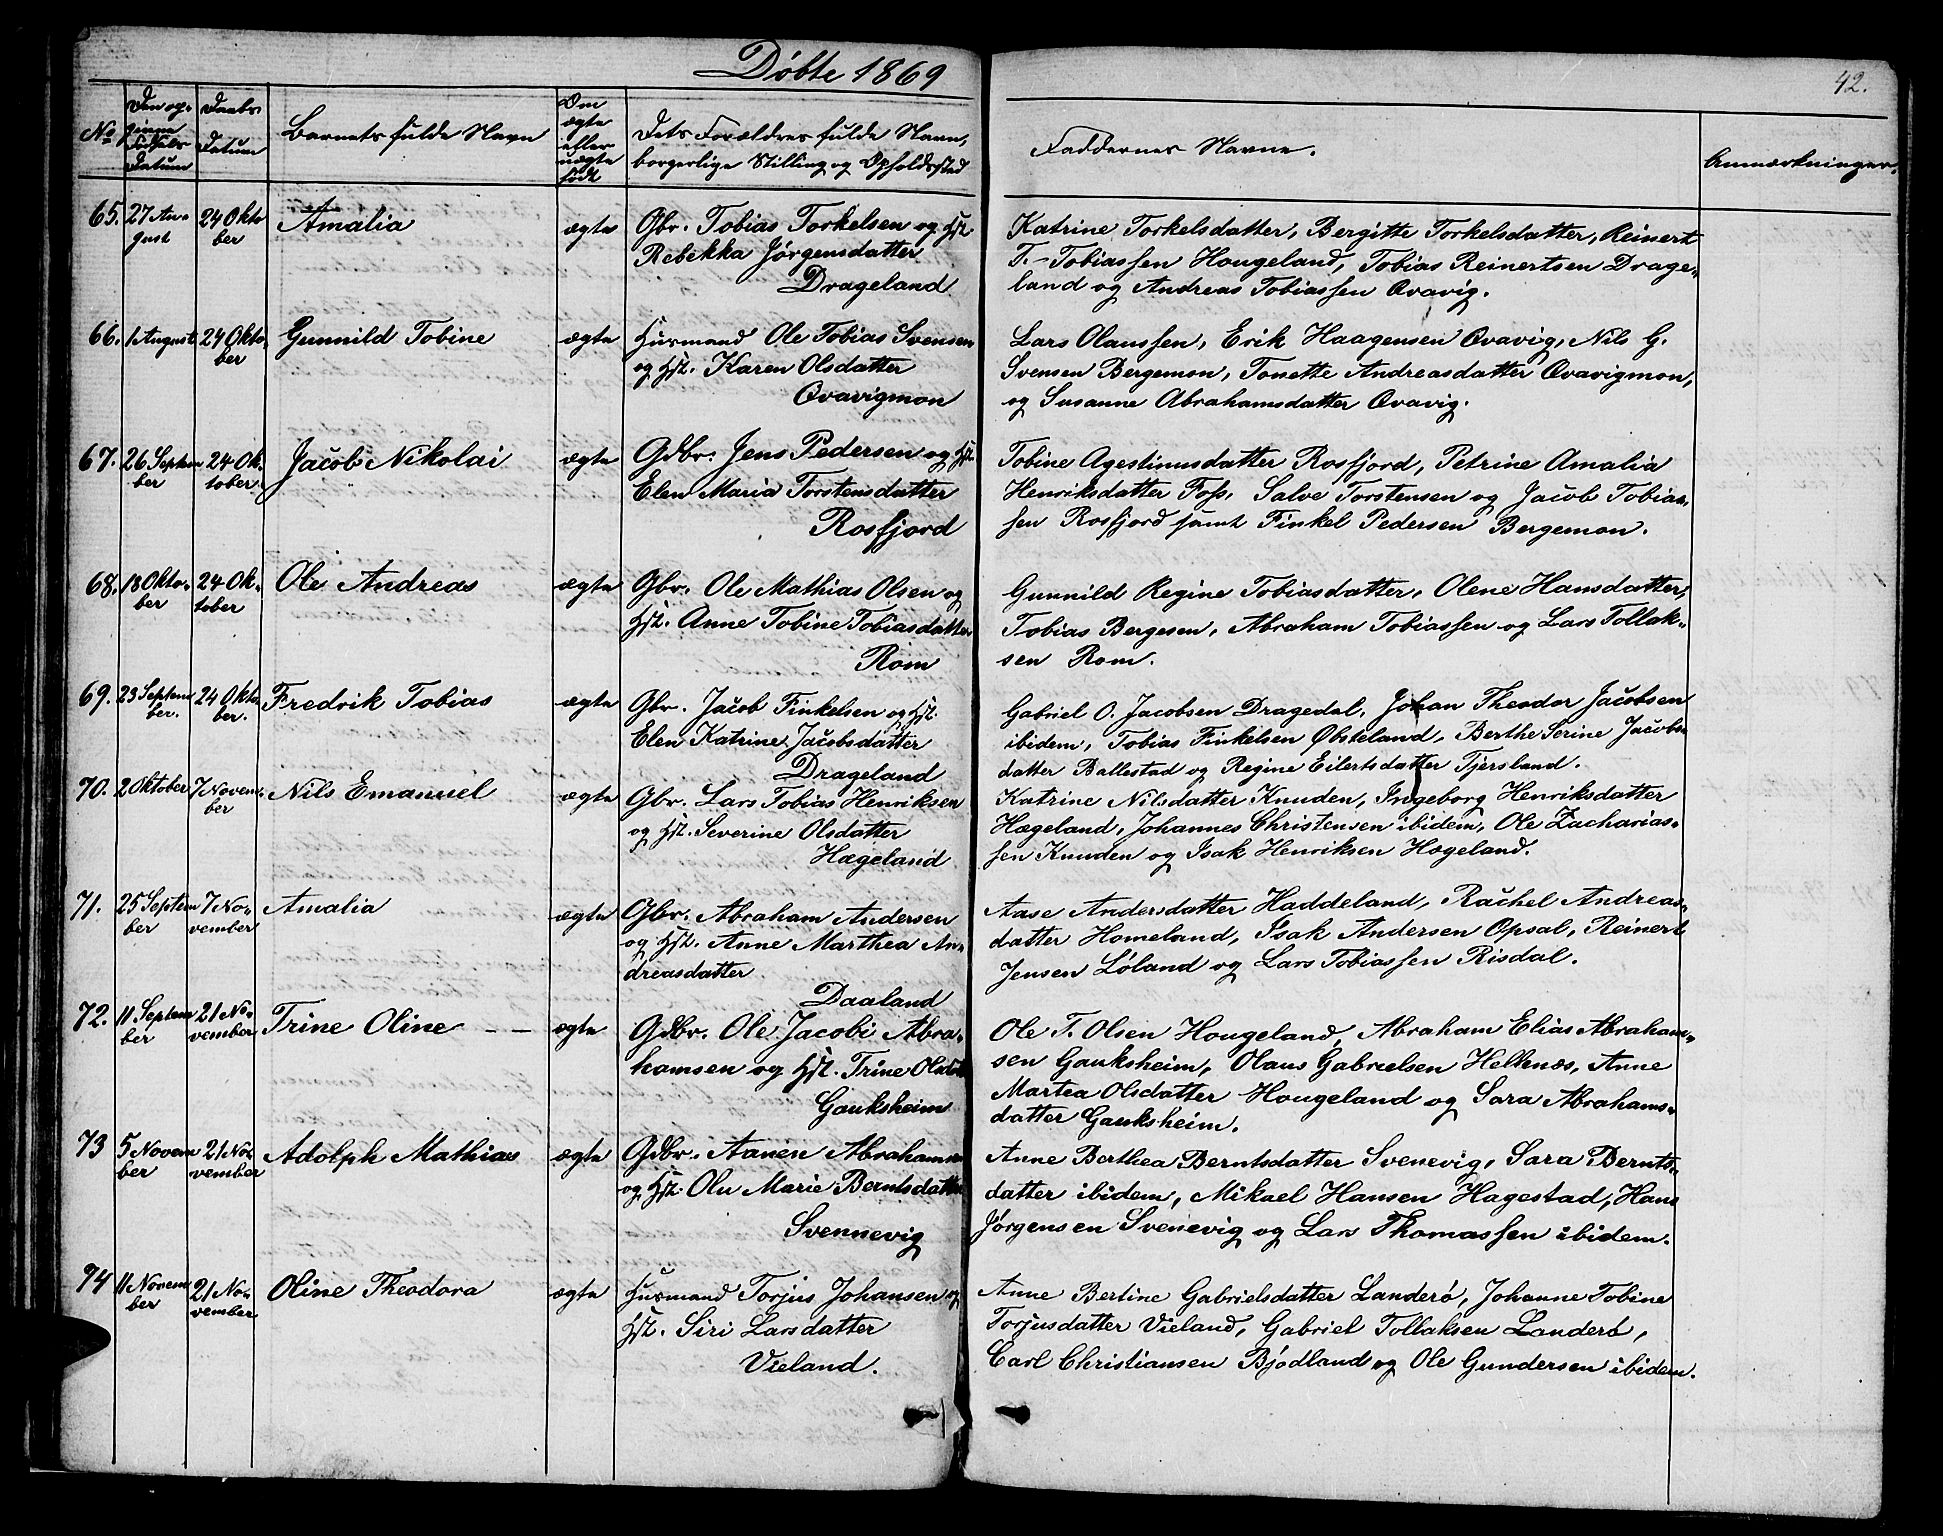 Døbte 1869
42.
No
Daabs-
Datum
Barnets fulde Navn
Om
ægte
eller
uægte
født
Dets Forældres fulde Navn,
borgerlige Stilling og Opholdssted
Faddernes Navne.
Anmærkninger.
65. 27 Au- 24 Okto Amalia ægte Gbr. Tobias Torkelsen og Hst.
gust ber Rebekka Jørgensdatter
Drageland
Katrine Torkelsdatter, Bergitte Torkelsdatter, Reinert
T. Tobiassen Hougeland, Tobias Reinertsen Drage-
land og Andreas Tobiassen Qvavig.
66. 1 August 24 Okto- Gunnild Tobine ægte Husmand Ole Tobias Svensen
ber og Hst. Karen Olsdatter
Qvavigmon
Lars Olaussen, Erik Haagensen Qvavig, Nils G.
Svensen Bergemon, Tonette Andreasdatter Qvavigmon,
og Susanne Abrahamsdatter Qvavig.
67. 26 Septem 24 Ok- Jacob Nikolai ægte Gdbr. Jens Pedersen og Hst.
ber tober Elen Maria Torstensdatter
Rosfjord
Tobine Agestinusdatter Rosfjord, Petrine Amalia
Henriksdatter Foss, Salve Torstensen og Jacob Tobias-
sen Rosfjord samt Finkel Pedersen Bergemon.
68. 18 Okto- 24 Ok- Ole Andreas ægte Gbr. Ole Mathias Olsen og
ber tober Hst. Anne Tobine Tobiasdatter
Rom
Gunnild Regine Tobiasdatter, Olene Hansdatter,
Tobias Bergesen, Abraham Tobiassen og Lars Tollak-
sen Rom.
69. 23 Septem 24 Okto Fredrik Tobias ægte Gbr. Jacob Finkelsen og Hst.
ber. ber. Elen Katrine Jacobsdatter
Drageland
Gabriel O. Jacobsen Dragedal, Johan Theodor Jacobsen
ibidem, Tobias Finkelsen Øbsteland, Berthe Serine Jacobs-
datter Ballestad og Regine Eilertsdatter Tjersland.
70. 2 Oktober 7 Novem- Nils Emanuel ægte Gbr. Lars Tobias Henriksen
ber og Hst. Severine Olsdatter
Hægeland
Katrine Nilsdatter Knuden, Ingeborg Henriksdatter
Hægeland, Johannes Christensen ibidem, Ole Zacharias-
sen Knuden og Isak Henriksen Hægeland.
71. 25 Septem 7 No- Amalia ægte Gbr. Abraham Andersen
ber vember og Hst. Anne Marthea An-
dreasdatter
Daaland
Aase Andersdatter Haddeland, Rachel Andreas-
datter Homeland, Isak Andersen Opsal, Reinert
Jensen Løland og Lars Tobiassen Risdal.
72. 11 Septem 21 No- Trine Oline - - ægte Gdbr. Ole Jacobi Abra-
ber vember hamsen og Hst. Trine
Gauksheim
Ole T. Olsen Hougeland, Abraham Elias Abraham-
sen Gauksheim, Olaus Gabrielsen Hellenæs, Anne
Martea Olsdatter Hougeland og Sara Abrahams-
datter Gauksheim.
73 5 Novem 21 No- Adolph Mathias ægte Gdbr. Aanen Abrahamsen
ber vember og Hst. Olu Marie Berntsdatter
Svennevig
Anne Berthea Berntsdatter Svenevig, Sara Bernts-
datter ibidem, Mikael Hansen Hagestad, Hans
Jørgensen Svenevig og Lars Thomassen ibidem.
74 11 Novem 21 No- Oline Theodora ægte Husmand Torjus Johansen og
ber vember Hst. Siri Larsdatter
Vieland.
Anne Bertine Gabrielsdatter Landerø, Johanne Tobine
Torjusdatter Vieland, Gabriel Tollaksen Landerø,
Carl Christiansen Bjødland og Ole Gundersen ibidem.